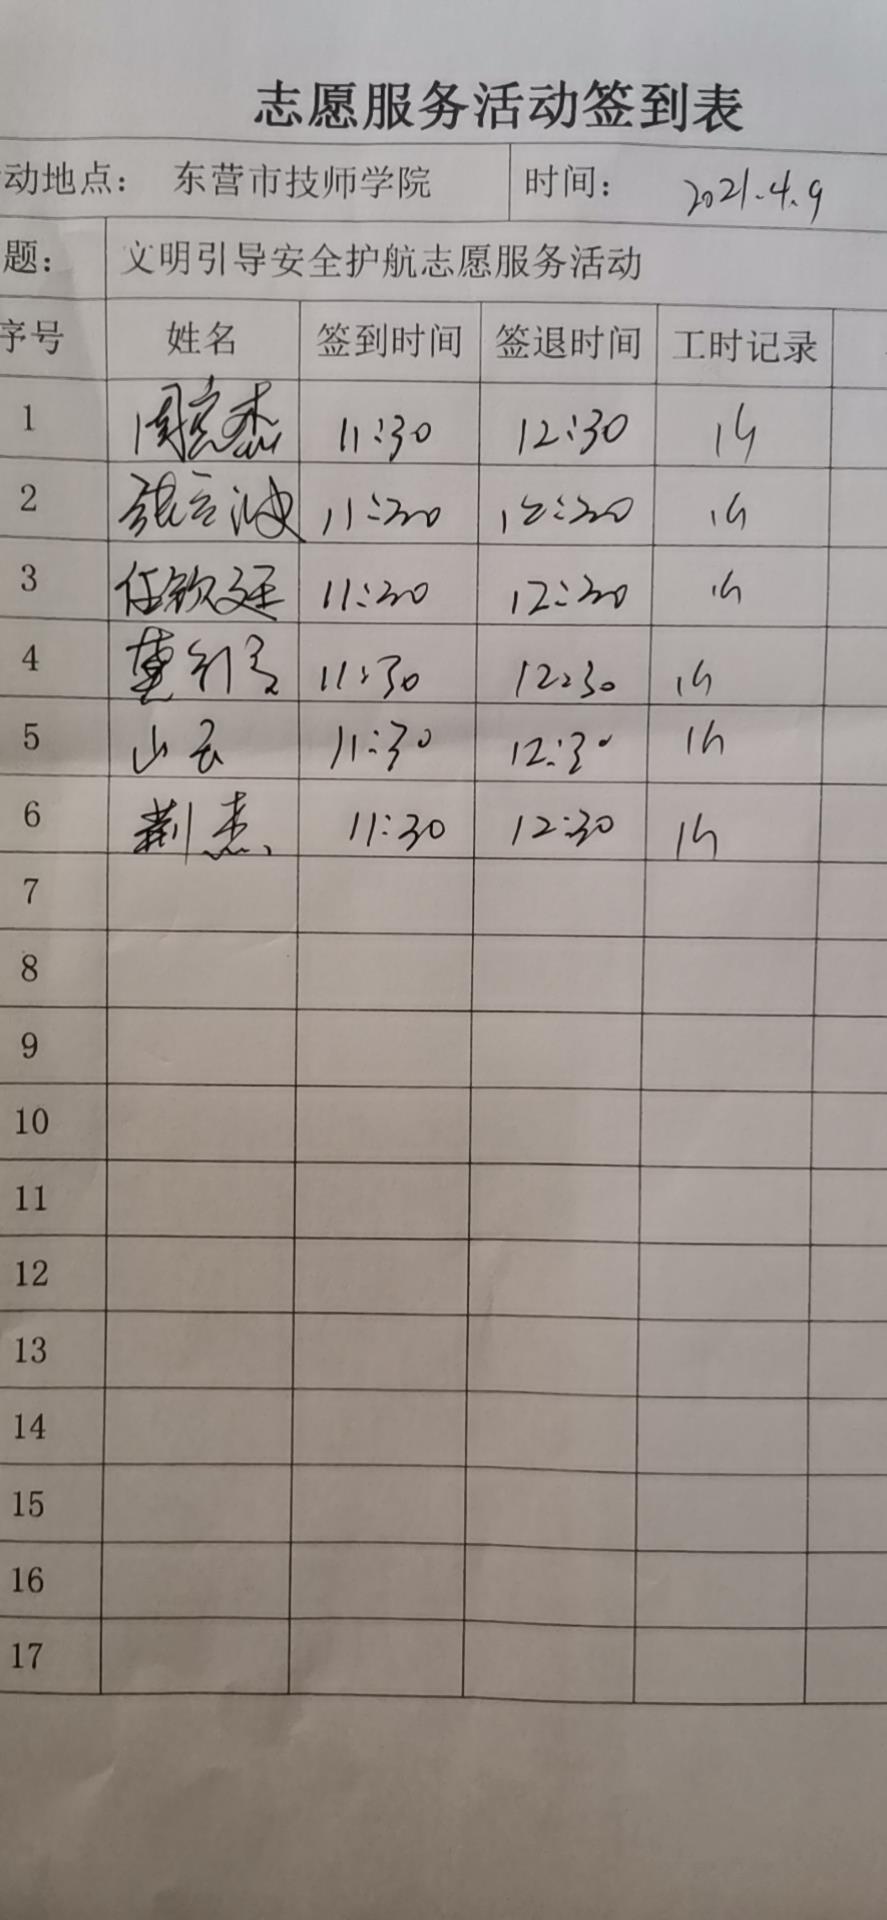 志愿服务活动签到表
动地点： 东营市技师学院 时间： 2021.4.9
题： 文明引导安全护航志愿服务活动
序号 姓名 签到时间 签退时间 工时记录
1 11:30 12:30 1h
2 11:30 12:30 1h
3 任钦廷 11:30 12:30 1h
4 11:30 12:30 1h
5 11:30 12:30 1h
6 荆杰 11:30 12:30 1h
7
8
9
10
11
12
13
14
15
16
17